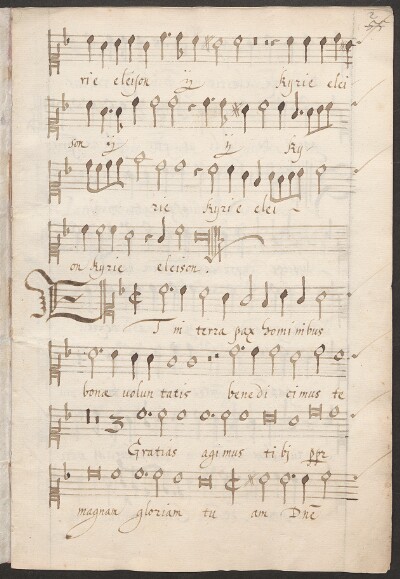 rie eleison ij Kyrie elei
son ij ij Ky
rie Kyrie elei
on Kyrie eleison.
ET in terra pax hominibus
bonæ voluntatis benedicimus te
Gratias agimus tibi ppr
magnam gloriam tuam Dnē